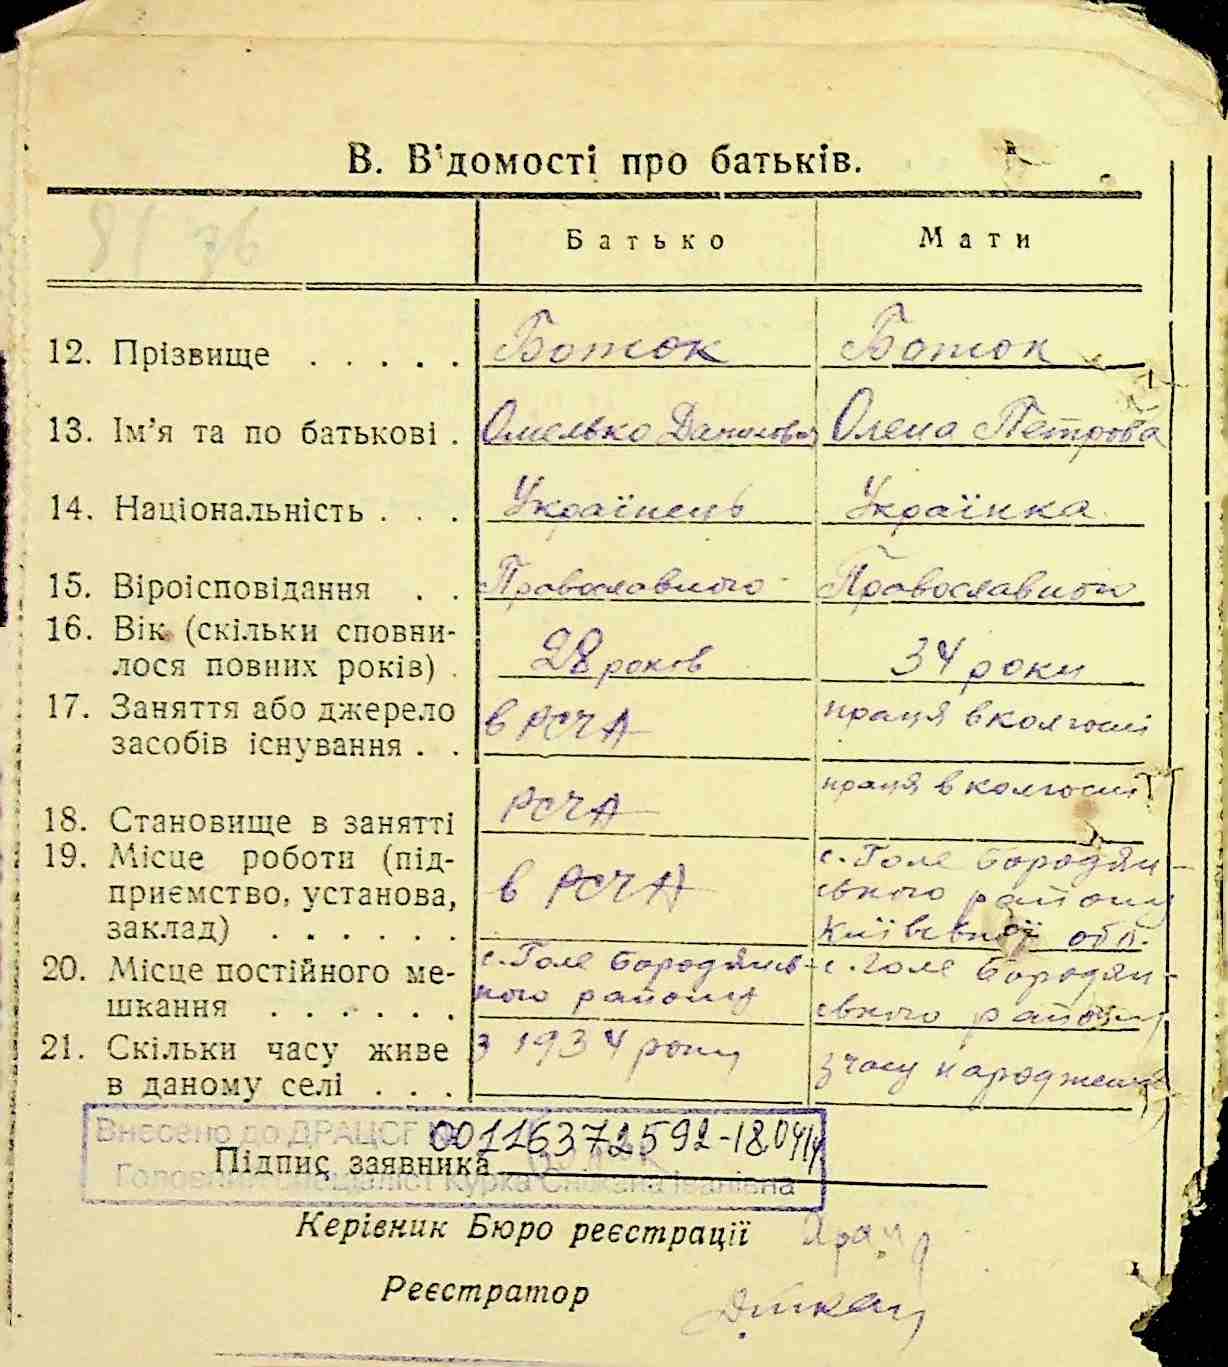 В. Відомості про батьків.
81 76
Батько Мати
12. Прізвище . . . . . Боток Боток
13. Ім'я та по батькові . Омелько Данилович Олена Петрова
14. Національність . . . Українець Українка
15. Віроісповідання . . Православного Православного
16. Вік (скільки сповни-
лося повних років) . 28 років 34 роки
17. Заняття або джерело
засобів існування . . в РСЧА праця в колгоспі
18. Становище в занятті РСЧА праця в колгоспі
19. Місце роботи (під-
приємство, установа,
заклад) . . . . . . в РСЧА с. Голе Бородян-
ського району
Київської обл.
20. Місце постійного ме-
шкання . . . . . . с. Голе Бородянсь-
кого району с. Голе Бородян-
ського району
21. Скільки часу живе
в даному селі . . . з 1934 року з часу народження
Внесено до ДРАЦСГ № 00116372592-18.04.14
Підпис заявника
Головний спеціаліст Курка Світлана Іванівна
Керівник Бюро реєстрації
Реєстратор